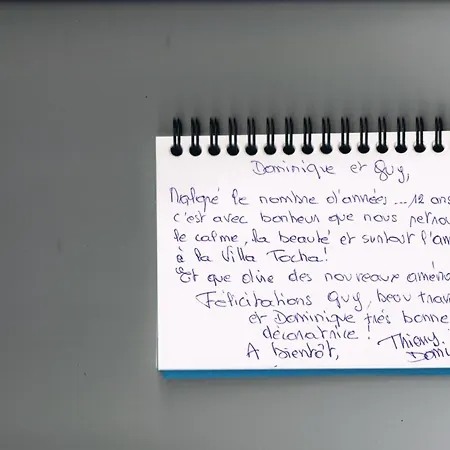 Dominique et Guy,
Malgré le nombre d'années ... 12 ans
c'est avec bonheur que nous retrou
le calme, la beauté et surtout l'am
à la Villa Tocha!
Et que dire des nouveaux aména
Félicitations Guy, beau trava
et Dominique très bonne
décoratrice!
A bientôt, Thierry.
Domi